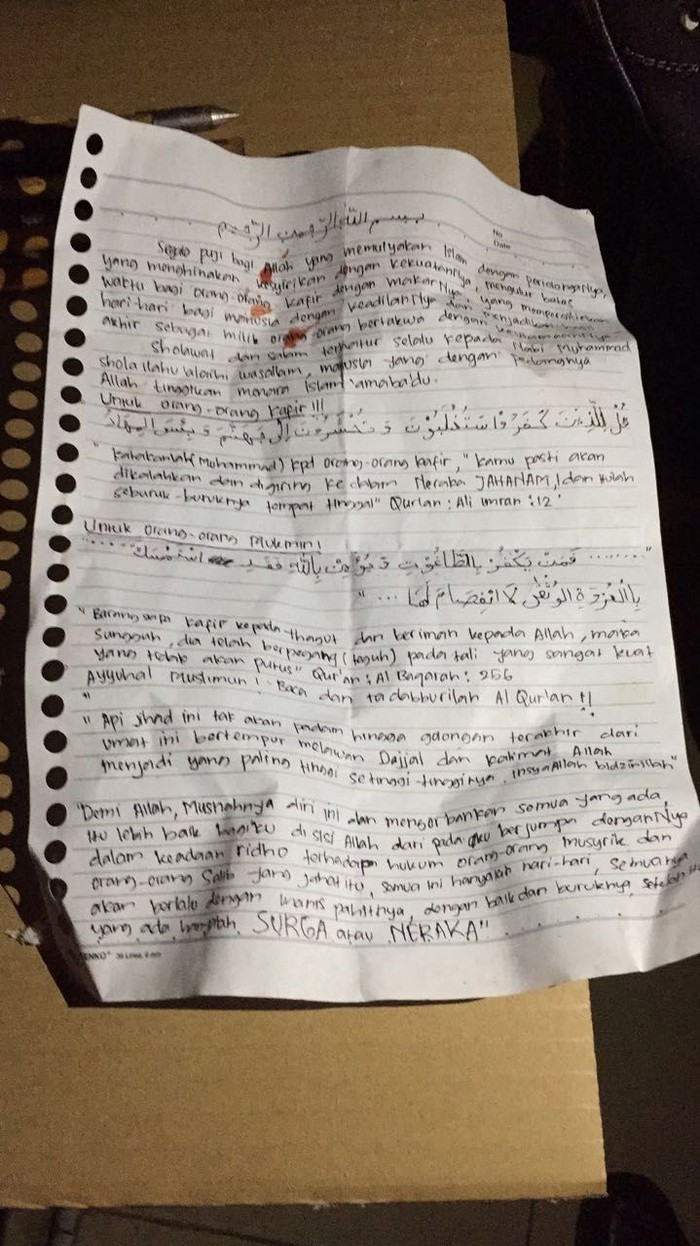 بسم الله الرحمن الرحيم
No
Date
Segala puji bagi Allah yang memulyakan Islam dengan pertolonganNya,
yang menghinakan kesyirikan dengan kekuatanNya, mengulur batas
waktu bagi orang-orang kafir dengan makarNya, yang mempergilirkan
hari-hari bagi manusia dengan keadilanNya dan menjadikan
akhir sebagai milik orang-orang bertakwa dengan
Sholawat dan salam terhatur selalu kepada Nabi Muhammad
sholallahu'alaihi wasallam, manusia yang dengan pedangnya
Allah tinggikan menara Islam 'amaba'du.
Untuk orang-orang kafir!!!
قُلْ لِلَّذِيْنَ كَفَرُوْا سَتُغْلَبُوْنَ وَتُحْشَرُوْنَ إِلَى جَهَنَّمَ وَبِئْسَ الْمِهَادُ
"Katakanlah (Muhammad) kpd orang-orang kafir, "kamu pasti akan
dikalahkan dan digiring ke dalam Neraka JAHANAM, dan itulah
seburuk-buruknya tempat tinggal" Qur'an : Ali Imran : 12
Untuk orang-orang Mukmin!
"........ فَمَنْ يَكْفُرْ بِالطَّاغُوْتِ وَيُؤْمِنْ بِاللَّهِ فَقَدِ اسْتَمْسَكَ
بِالْعُرْوَةِ الْوُثْقَى لَا انْفِصَامَ لَهَا ... "
"Barang siapa kafir kepada thagut dan beriman kepada Allah, maka
sungguh, dia telah berpegang (teguh) pada tali yang sangat kuat
yang tidak akan putus" Qur'an : Al Baqarah : 256
Ayyuhal Muslimun! Baca dan tadabburilah Al Qur'an!!
"Api jihad ini tak akan padam hingga golongan terakhir dari
umat ini bertempur melawan Dajjal dan kalimat Allah
menjadi yang paling tinggi setinggi-tingginya, insyaAllah bidznillah"
"Demi Allah, Musnahnya diri ini dan mengorbankan semua yang ada,
itu lebih baik bagiku di sisi Allah dari pada aku berjumpa denganNya
dalam keadaan ridho terhadap hukum orang-orang musyrik dan
orang-orang Salib yang jahat itu, semua ini hanyalah hari-hari, semuanya
akan berlalu dengan manis pahitnya, dengan baik dan buruknya, setelah itu
yang ada hanyalah SURGA atau NERAKA"